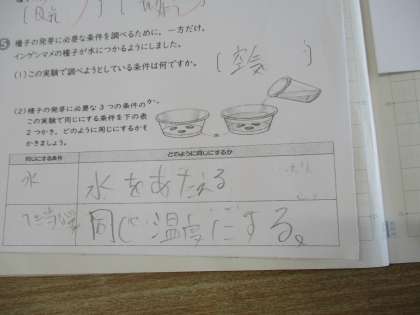 5 種子の発芽に必要な条件を調べるために、一方だけ、
インゲンマメの種子が水につかるようにしました。
(1) この実験で調べようとしている条件は何ですか。
(空気)
(2) 種子の発芽に必要な3つの条件のか、
この実験で同じにする条件を下の表
2つかき、どのように同じにするかを
かきましょう。
同じにする条件 どのように同じにするか
水 水をあたえる
同じ温度にする。